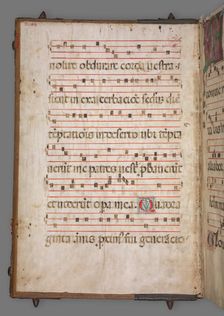 nolite obdurare corda vestra
sicut in exacerbacione secus diem
temptationis in deserto ubi tempta
verunt me patres vestri probaverunt
et viderunt opera mea Quadra
ginta annis proximus fui generacio